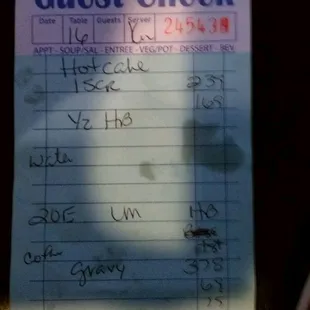 Guest Check
Date Table Guests Server
16 245438
APPT - SOUP/SAL - ENTREE - VEG/POT - DESSERT - BEV
Hotcake
1 SCR 239
169
1/2 HB
Water
2OE UM HB
Gravy 378
69